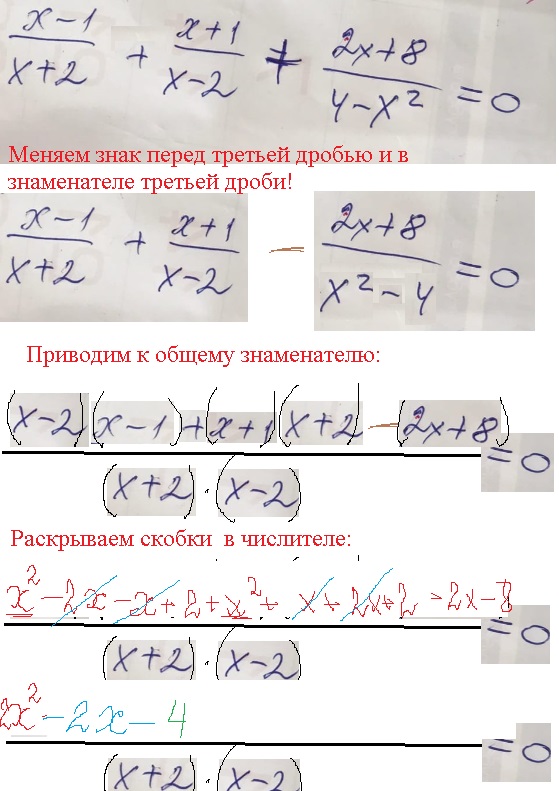 (x-1)/(x+2) + (x+1)/(x-2) + (2x+8)/(4-x²) = 0
Меняем знак перед третьей дробью и в
знаменателе третьей дроби!
(x-1)/(x+2) + (x+1)/(x-2) - (2x+8)/(x²-4) = 0
Приводим к общему знаменателю:
(x-2)(x-1)+(x+1)(x+2)-(2x+8)
(x+2)·(x-2) = 0
Раскрываем скобки в числителе:
x²-2x-x+2+x²+x+2x+2-2x-8
(x+2)·(x-2) = 0
2x²-2x-4
(x+2)·(x-2) = 0